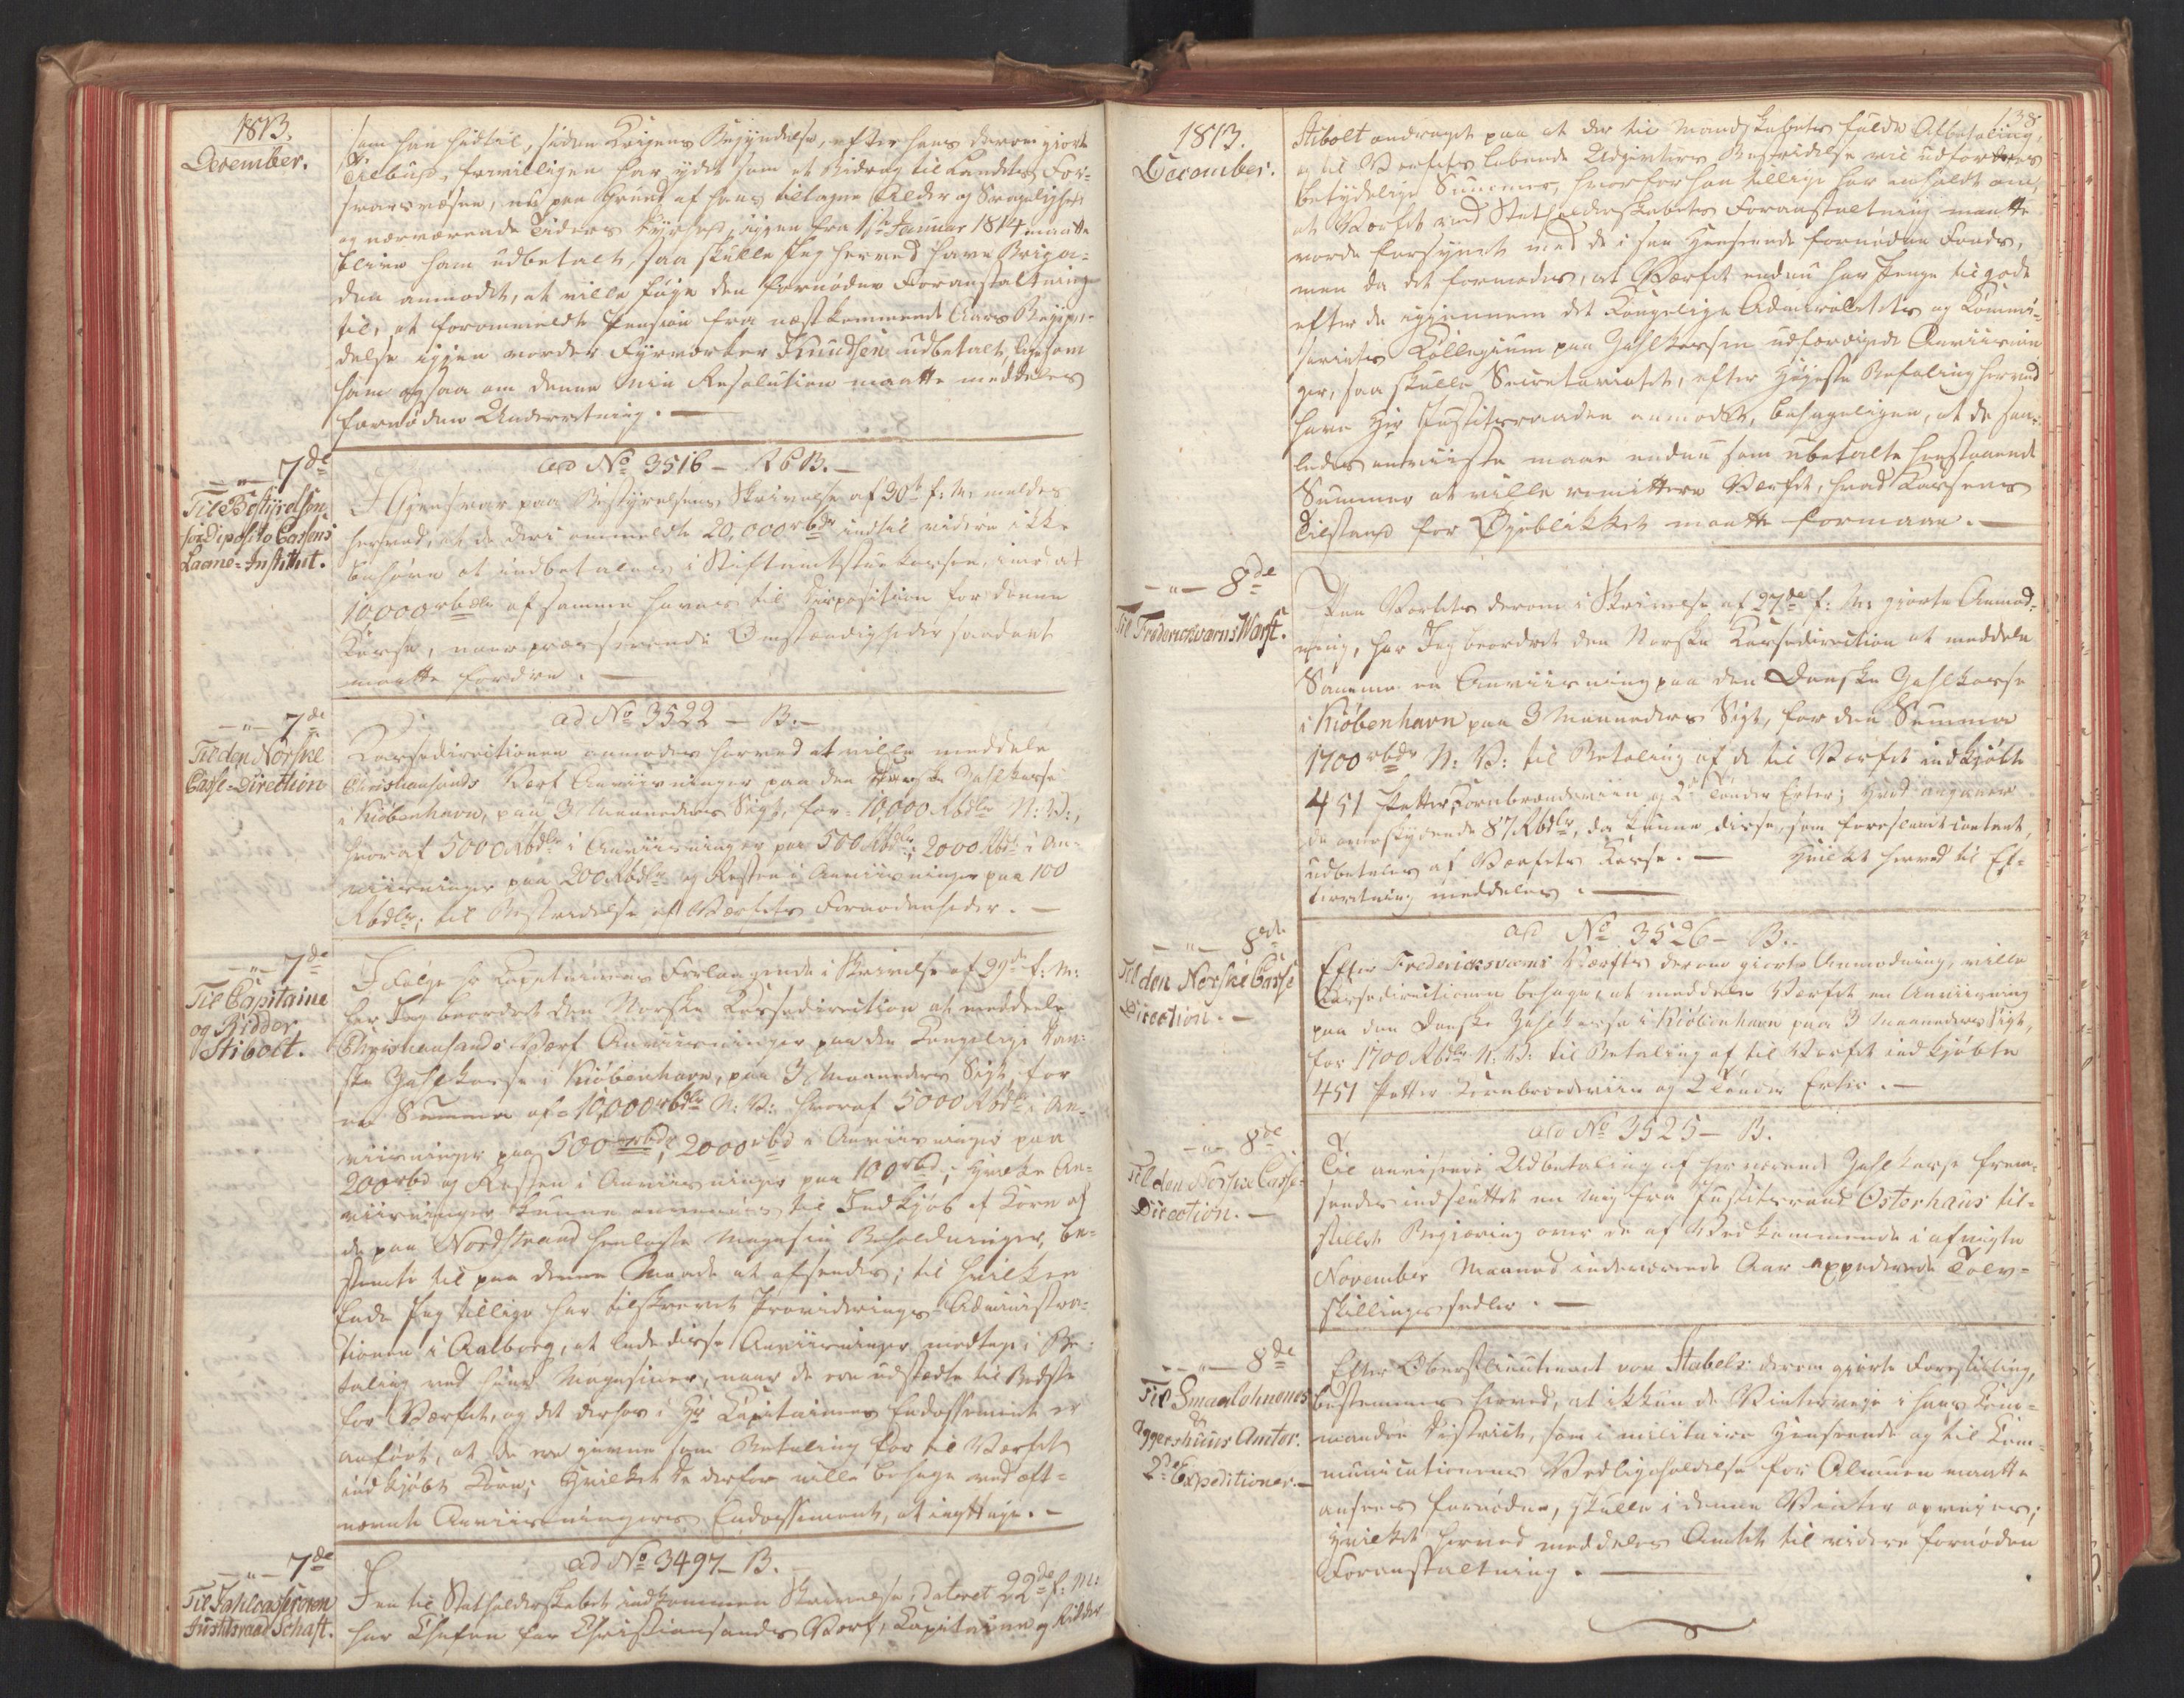 1813.
December.
som han hidtil, siden Krigens Begyndelse, efter hans derom giort
Tilbud, frivilligen har ydet som et Bidrag til Landets For-
svarsvæsen, nu paa Grund af hans tiltagne Alder og Svagelighed
og nærværende Tiders Dyrhed, igjen fra 1ste Januar 1814 maatte
blive ham udbetalt, saa skulle Jeg herved have Briga-
den anmodet, at ville føje den fornødne Foranstaltning
til, at forommeldte Pension fra næstkommende Aars Begyn-
delse igjen vorder Fyrværker Knudsen udbetalt, ligesom
ham ogsaa om denne Min Resolution maatte meddeles
fornøden Underretning. —
— " — 7de
Til Bestyrelsen
for Deposito Cassens
Laane-Institut.
ad No 3516 — B.—
I Gjensvar paa Bestyrelsens Skrivelse af 30te f: M: meldes
herved, at de deri ommeldte 20,000 rbdr indtil videre ikke
behøve at indbetales i Stiftamtstuekassen, imod at
10,000 rbdlr af samme haves til Disposition for denne
Kasse, naar presserende Omstændigheder saadant
maatte fordre. —
— " — 7de
Til den Norske
Casse-Direction
ad No 3522 — B.—
Cassedirectionen anmodes herved at ville meddele
Christiansands Værf Anviisninger paa den danske Zahlkasse
i Kiöbenhavn, paa 3 Maaneders Sigt, for 10,000 Rbdlr N: V:,
hvoraf 5000 Rbdlr i Anviisninger paa 500 Rbdlr, 2000 Rbdr i An-
viisninger paa 200 Rbdlr og Resten i Anviisninger paa 100
Rbdlr; til Bestridelse af Værfets Fornødenheder. —
— " — 7de
Til Capitaine
og Ridder
Stibolt.
I Følge Hr Capitainens Forlangende i Skrivelse af 29de f: M:
har Jeg beordret den Norske Cassedirection at meddele
Christiansands Værf Anviisninger paa den Kongelige Dan-
ske Zahlkasse i Kiöbenhavn, paa 3 Maaneders Sigt, for
en Summa af 10,000 rbdlr N: V: hvoraf 5000 Rbdr i An-
viisninger paa 500 rbdr, 2000 rbd i Anviisninger paa
200 rbd og Resten i Anviisninger paa 100 rbd; hvilke An-
viisninger kunne anvendes til Indkjøb af Korn af
de paa Nordstrand henlagte Magasin Beholdninger, be-
stemte til paa denne Maade at afsendes; til hvilken
Ende Jeg tillige har tilskrevet Provideringe-Administra-
tionen i Aalborg, at lade disse Anviisninger modtage i Be-
taling ved hine Magasiner, naar de ere udstædte til Bedste
for Værfet, og det derhos i Hr Capitainens Endossement er
anført, at de ere givne som Betaling for til Værfet
indkjøbt Korn; hvilket De derfor ville behage ved oft-
nævnte Anviisningers Endossement, at iagttage. —
— " — 7de
Til Zahlcasserer
Justitsraad Schaft.
ad No 3497 — B.
I en til Statholderskabet indkommen Skrivelse, dateret 22de f: M:
har Chefen for Christiansands Værf, Capitaine og Ridder
138
1813.
December.
Stibolt andraget paa at der til Mandskabets fulde Afbetaling,
og til Værfets løbende Udgivters Bestridelse vil udfordres
betydelige Summer, hvorfor han tillige har anholdt om,
at Værfet ved Statholderskabets Foranstaltning maatte
vorde forsynet med de i saa Henseende fornødne Fonds,
men da det formodes, at Værfet endnu har Penge til gode
efter de igjennem det Kongelige Admiralitets og Commis-
sariats Collegium paa Zahlkassen udfærdigede Anviisnin-
ger, saa skulle Secretariatet, efter Højeste Befaling herved
have Hr Justitsraaden anmodet, behageligen, at de saa-
ledes anviiste men endnu som ubetalte henstaaende
Summer at ville remittere Værfet, hvad Cassens
Tilstand for Øjeblikket maatte formaae. —
— " — 8de
Til Fredericksværns Værft.
Paa Værfets derom i Skrivelse af 27de f: M: gjorte Anmod-
ning, har Jeg beordret den Norske Cassedirection at meddele
Samme en Anviisning paa den Danske Zahlkasse
i Kiöbenhavn paa 3 Maaneders Sigt, for den Summa
1700 rbdr N: V: til Betaling af de til Værfet indkjøbte
451 Potter Kornbrændeviin og 2 Tönder Erter; hvad angaaer
de overskydende 87 Rbdlr, da kunne disse, som foreslaaet contant,
udbetales af Værfets Kasse. — Hvilket herved til Ef-
terretning meddeles. —
— " — 8de
Til den Norske Casse
Direction. —
ad No 3526 — B.—
Efter Fredericksværns Værfts derom giorte Anmodning, ville
Cassedirectionen behage, at meddele Værfet en Anviisning
paa den Danske Zahlkasse i Kiöbenhavn paa 3 Maaneders Sigt,
for 1700 Rbdlr N: V: til Betaling af til Værfet indkjøbte
451 Potter Kornbrændeviin og 2 Tönder Erter. —
— " — 8de
Til den Norske Casse-
Direction. —
ad No 3525 — B.
Til anvisende Udbetaling af herværende Zahlkasse frem-
sendes indsluttet en mig fra Justitsraad Osterhaus til-
stillet Regning over de af Vedkommende i afvigte
November Maaned indeværende Aar expederede Tolv-
skillingssedler. —
— " — 8de
Til Smaalehnenes
og
Aggershuus Amter.
2de Expeditioner. —
Efter Oberstlieutenant von Stabels derom gjorte Forestilling,
bestemmes herved, at ikkun de Vinterveie i hans Com-
mandos District, som i militaire Henseende og til Com-
municationens Vedligeholdelse for Almuen maatte
ansees fornødne, skulle i denne Vinter opveies;
hvilket herved meddeles Amtet til videre fornøden
Foranstaltning. —